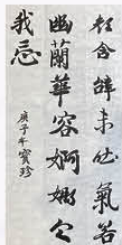 轻含辞未吐氣若
幽蘭華容婀娜令
我忘
庚子年寶珍